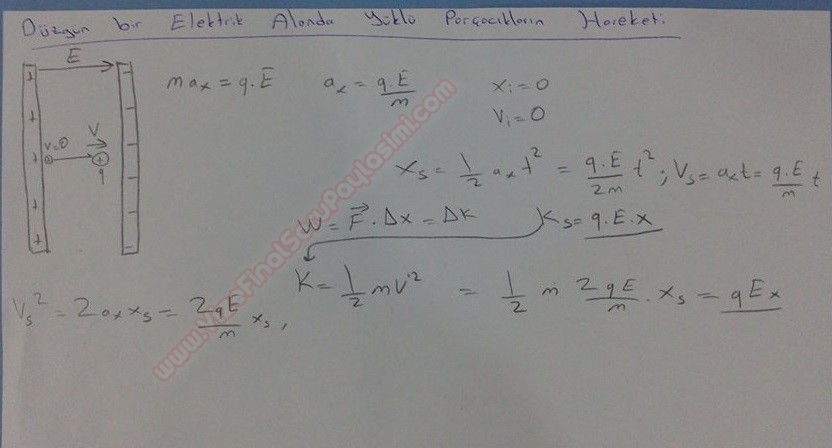 Düzgün bir Elektrik Alanda Yüklü Parçacıkların Hareketi
E
max = q.E ax = q.E/m xi = 0
vi = 0
v=0 V
q
xs = 1/2 axt² = q.E/2m t² ; Vs = axt = q.E/m t
W = F⃗ . Δx = ΔK Ks = q.E.x
K = 1/2 mv² = 1/2 m 2qE/m . xs = qEx
Vs² = 2axxs = 2qE/m xs,
www.VizeFinalSoruPaylasimi.com